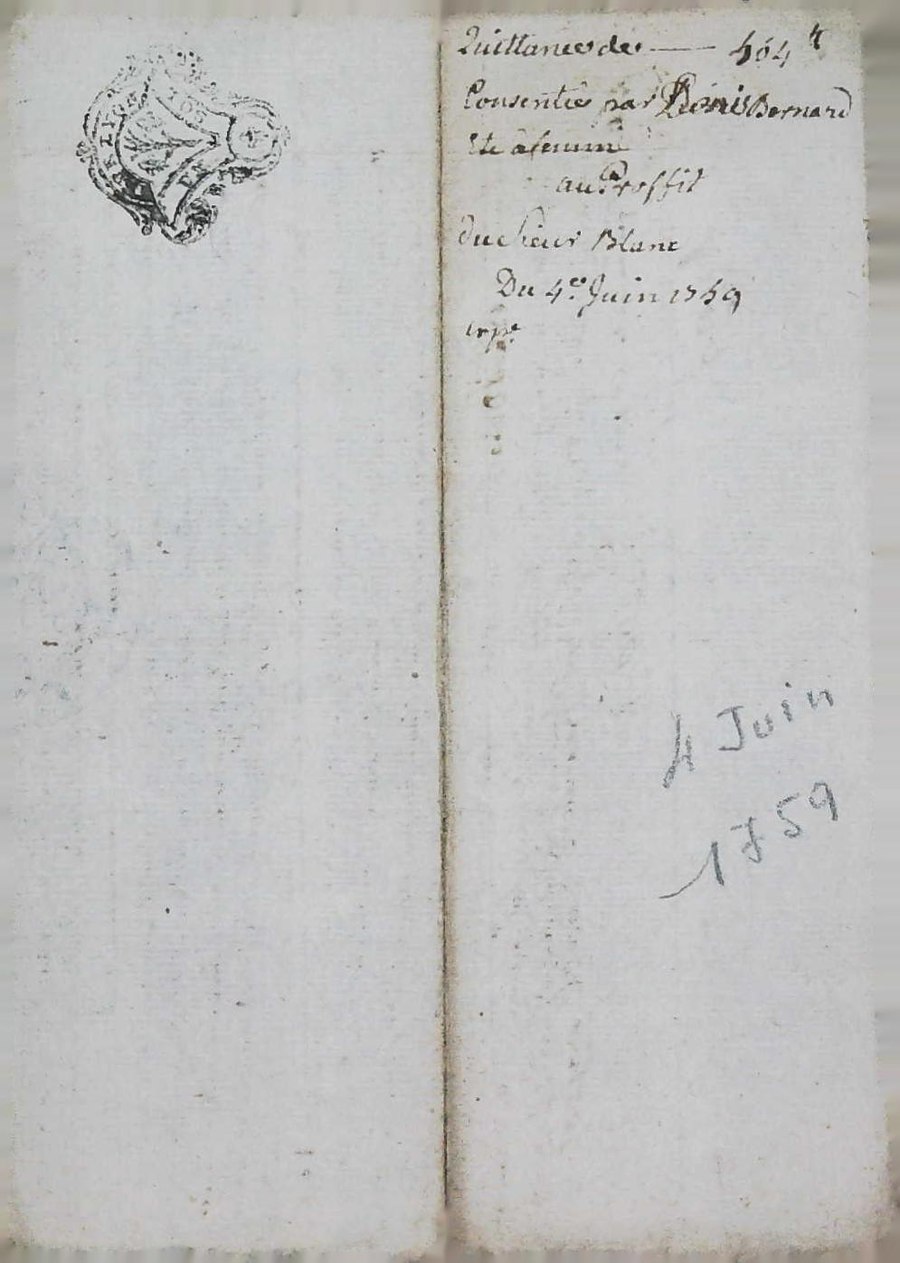 Quittances de — 404 ₶
Consenties par Denis Bernard
Et à femme
au Proffit
du Sieur Blanc
Du 4.e Juin 1759
exp.e
4 Juin
1759